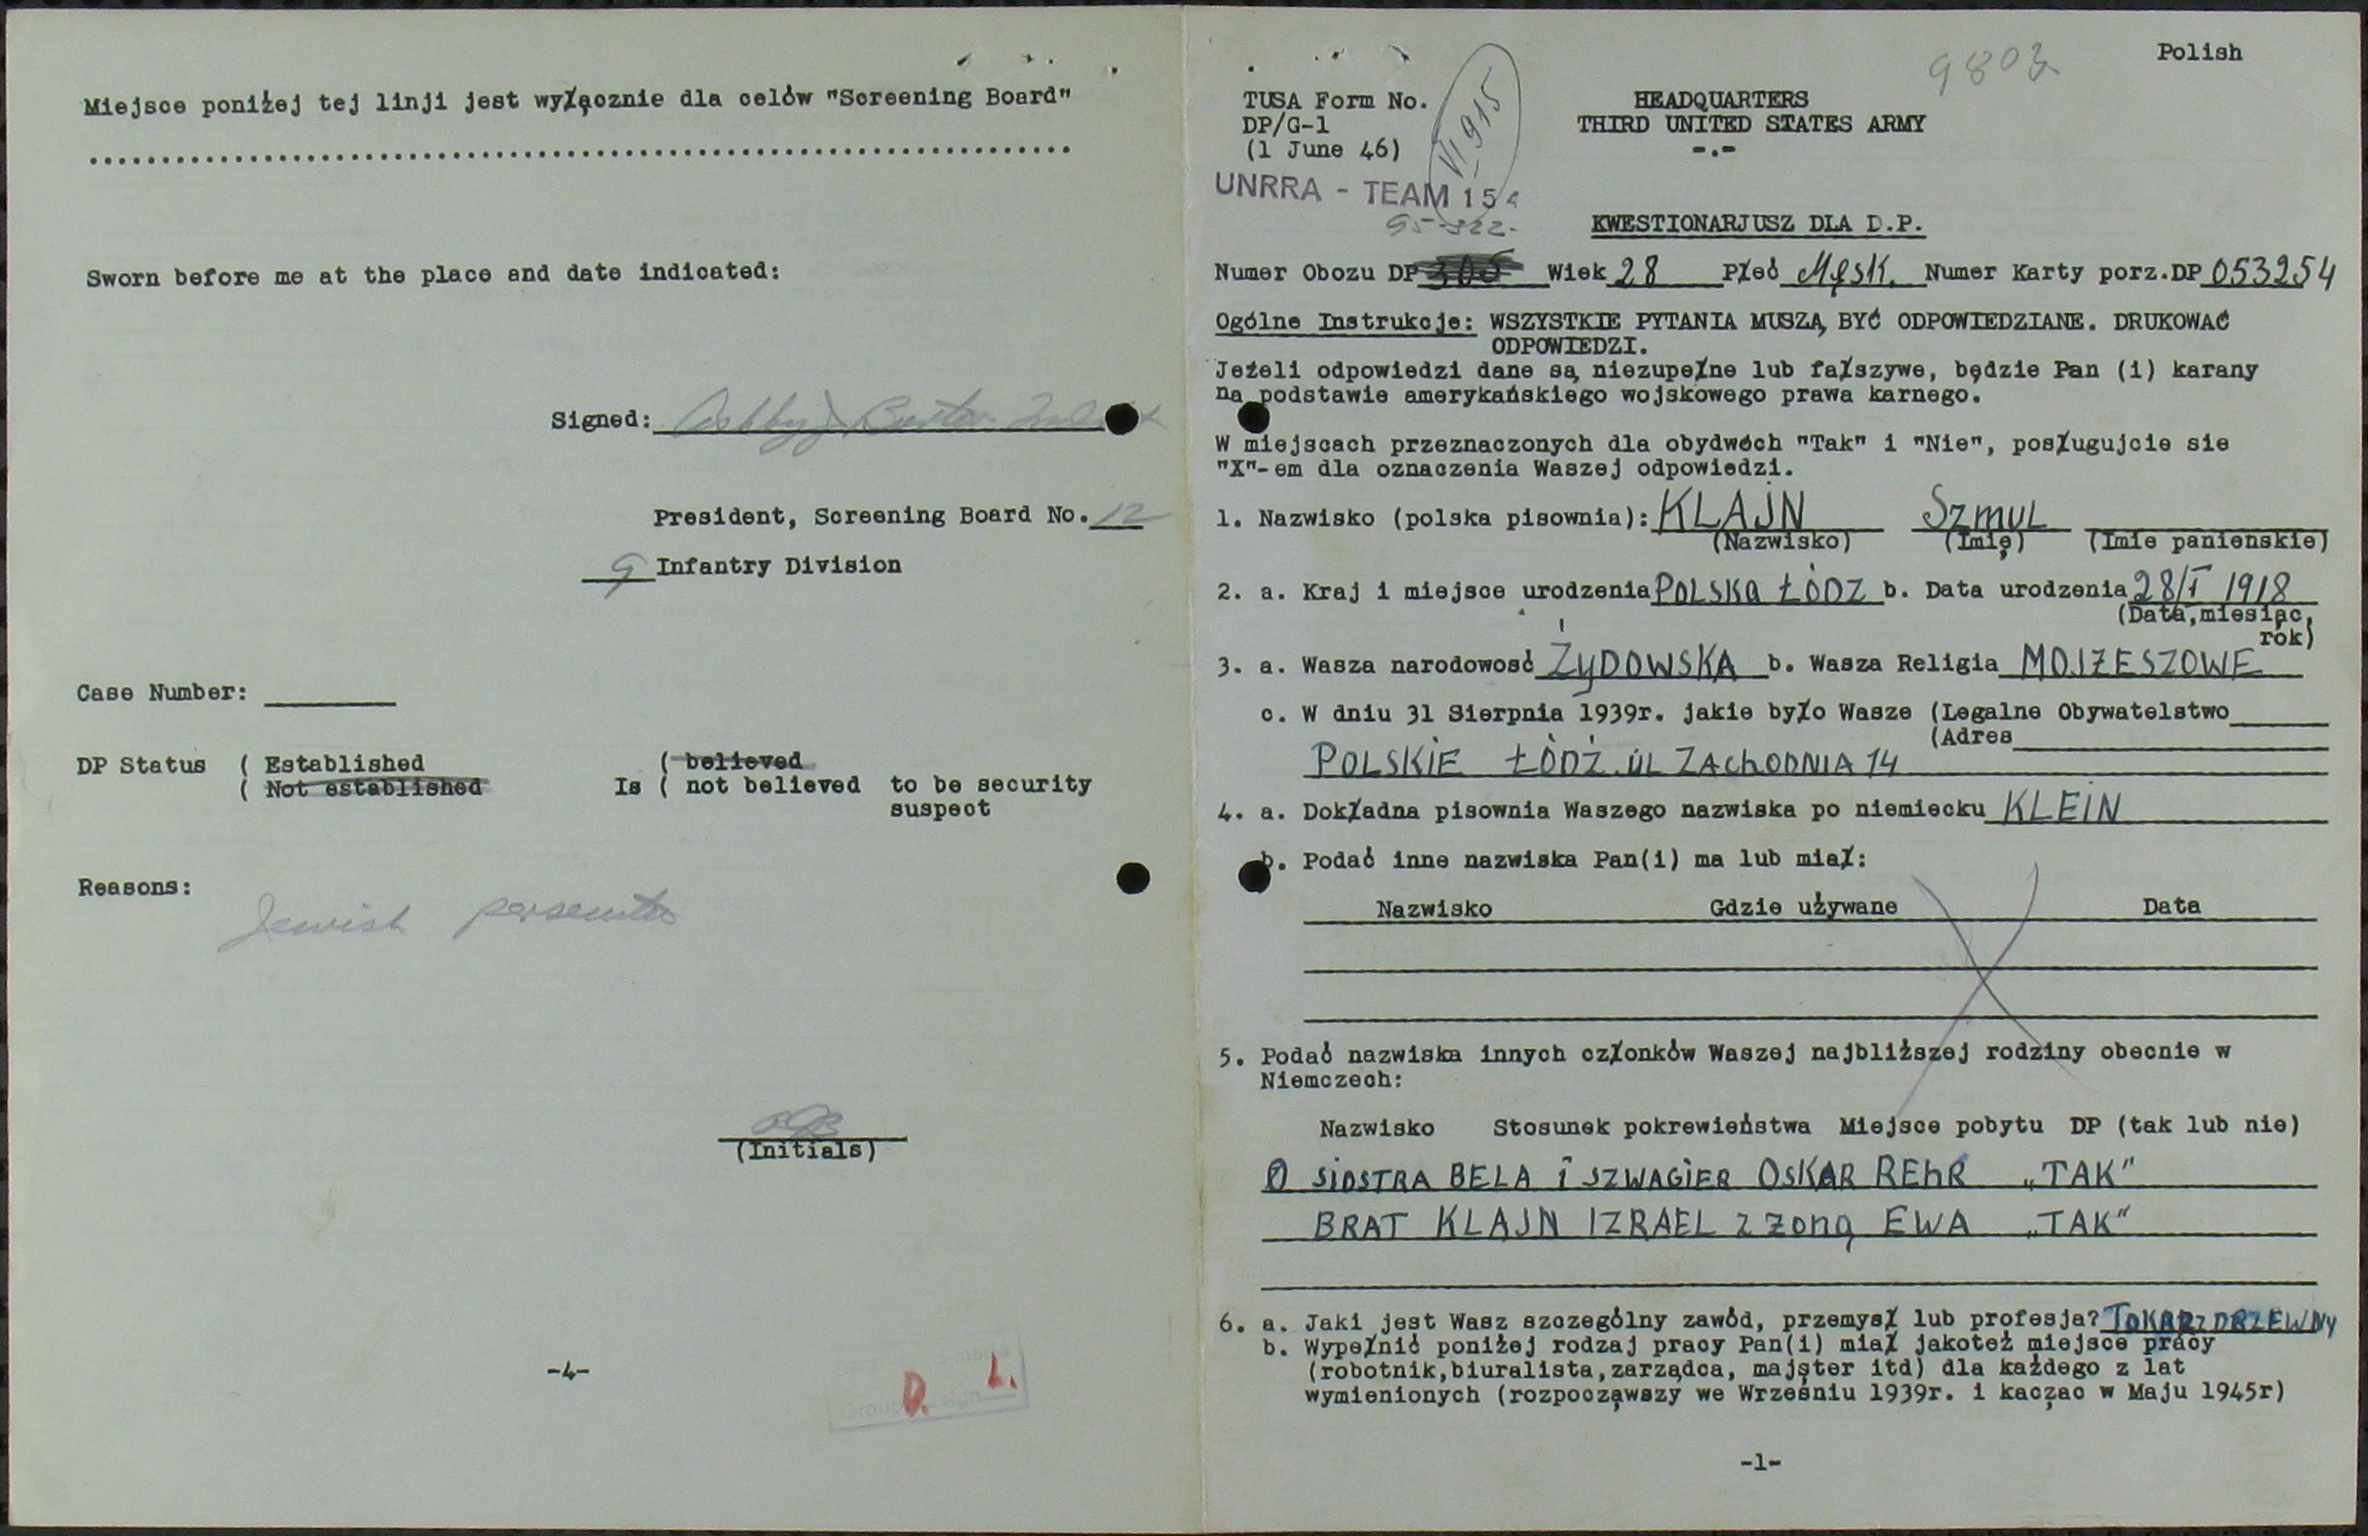 Miejsce poniżej tej linji jest wyłącznie dla celów "Screening Board"
Sworn before me at the place and date indicated:
Signed:
President, Screening Board No. 12
9 Infantry Division
Case Number:
DP Status ( Established ( believed
( Not established Is ( not believed to be security
suspect
Reasons:
Jewish
(Initials)
-4-
D. L.
9803
Polish
TUSA Form No. HEADQUARTERS
DP/G-1 THIRD UNITED STATES ARMY
(1 June 46) -.-
VI 915
UNRRA - TEAM 154
95-322-
KWESTIONARJUSZ DLA D.P.
Numer Obozu DP 305 Wiek 28 Płeć Męsk. Numer Karty porz.DP 053254
Ogólne Instrukcje: WSZYSTKIE PYTANIA MUSZĄ BYĆ ODPOWIEDZIANE. DRUKOWAĆ
ODPOWIEDZI.
Jeżeli odpowiedzi dane są niezupełne lub fałszywe, będzie Pan (i) karany
na podstawie amerykańskiego wojskowego prawa karnego.
W miejscach przeznaczonych dla obydwóch "Tak" i "Nie", posługujcie sie
"X"-em dla oznaczenia Waszej odpowiedzi.
1. Nazwisko (polska pisownia): KLAJN Szmul
(Nazwisko) (Imię) (Imie panienskie)
2. a. Kraj i miejsce urodzenia POLSKA ŁÓDZ b. Data urodzenia 28/I 1918
(Data,miesiąc,
rok)
3. a. Wasza narodowość ŻYDOWSKA b. Wasza Religia MOJŻESZOWE
c. W dniu 31 Sierpnia 1939r. jakie było Wasze (Legalne Obywatelstwo
(Adres
POLSKIE ŁÓDŻ. UL ZAChODNIA 14
4. a. Dokładna pisownia Waszego nazwiska po niemiecku KLEIN
b. Podać inne nazwiska Pan(i) ma lub miał:
Nazwisko Gdzie używane Data
5. Podać nazwiska innych członków Waszej najbliższej rodziny obecnie w
Niemczech:
Nazwisko Stosunek pokrewieństwa Miejsce pobytu DP (tak lub nie)
SIOSTRA BELA i SZWAGIER OSKAR REhR „TAK"
BRAT KLAJN IZRAEL z żoną EWA „TAK"
6. a. Jaki jest Wasz szczególny zawód, przemysł lub profesja? TOKARZ DRZEWNY
b. Wypełnić poniżej rodzaj pracy Pan(i) miał jakoteż miejsce pracy
(robotnik,biuralista,zarządca, majster itd) dla każdego z lat
wymienionych (rozpocząwszy we Wrześniu 1939r. i kacząc w Maju 1945r)
-1-